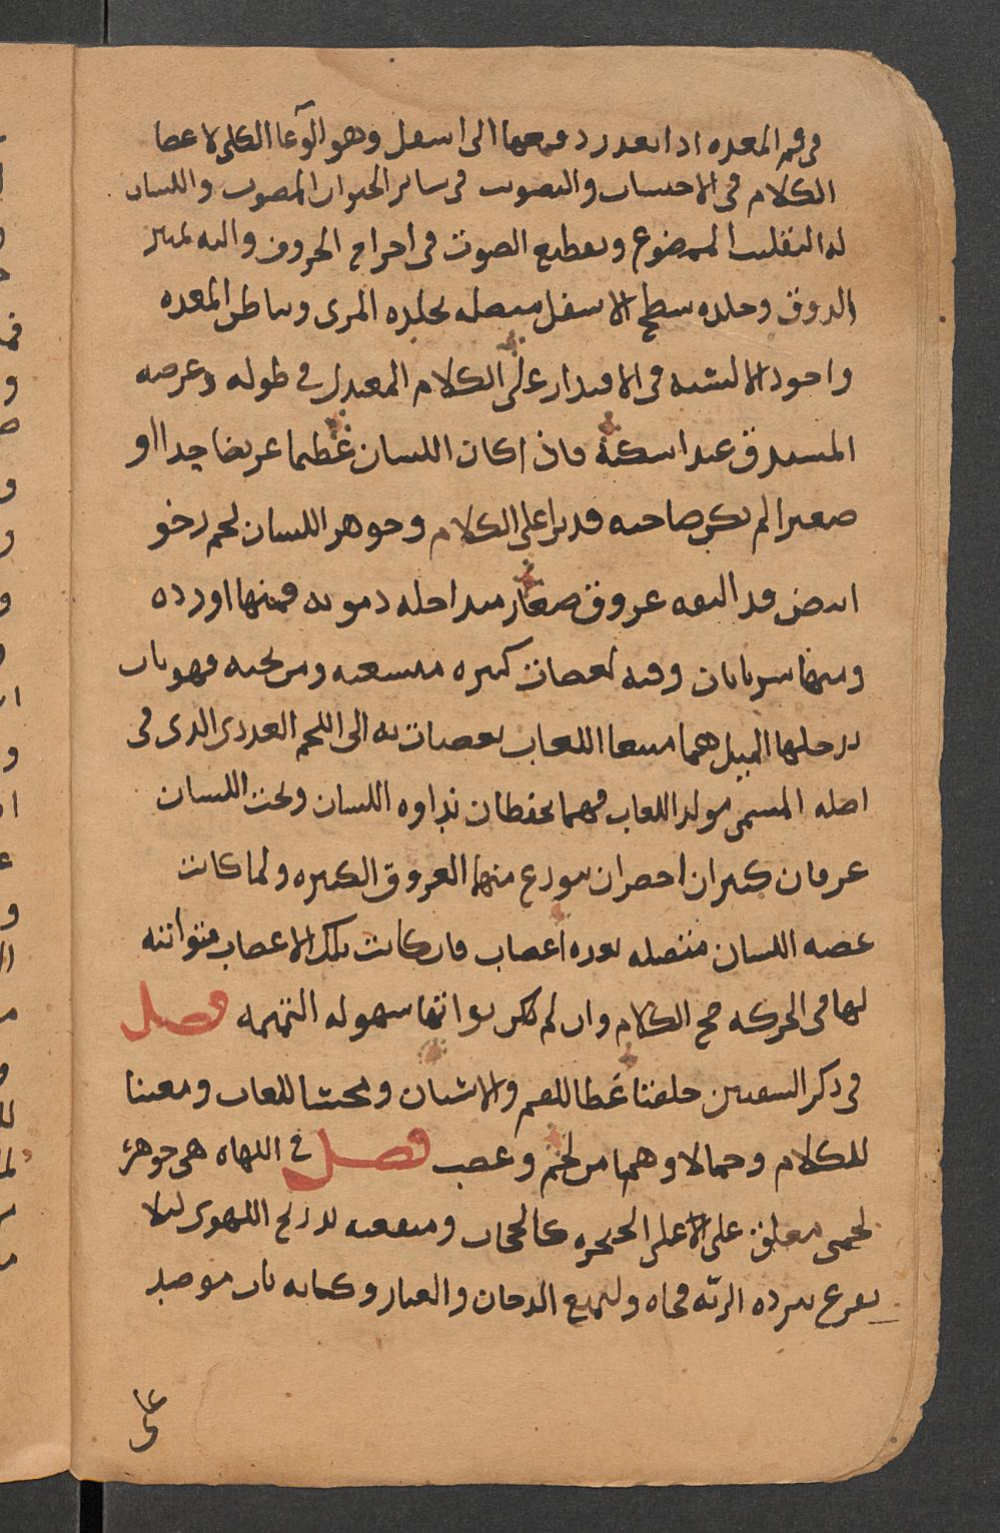 فى فم المعده اذا تعذر دفعهما الى اسفل وهو الوعا الكلى لاعضا
الكلام فى الاحتساب والتصويت فى ساير الحيوان المصوت واللسان
له التقليب الممضوغ وتقطيع الصوت فى اخراج الحروف واليه تميز
الذوق وجلده سطح الاسفل متصله بجلده المرى وباطن المعده
واجود الالسنه فى الاقتدار على الكلام المعتدل فى طوله وعرضه
المستدق عند اسكته فاذا كان اللسان عظيما عريضا جدا او
صغيرا لم يكن صاحبه قديرا على الكلام وجوهر اللسان لحم رخو
ابيض قد التفه عروق صغار متداخله دمويه فمنها اورده
ومنها شريانات وفيه لعصات كثيره متشعبه ومن تحته فوهتان
يدخلهما الميل هما منبعا اللعاب يفضيان به الى اللحم الغددى الذى فى
اصله المسمى مولد اللعاب فهما يحفظان نداوه اللسان وتحت اللسان
عرقان كبيران اخضران يتوزع منهما العروق الكثيره ولما كانت
عصبه اللسان متصله بعده اعصاب فان كانت تلك الاعصاب متواتيه
لها فى الحركه صح الكلام وان لم تكن تواتها سهوله التمتمه فصل
فى ذكر الشفتين خلقتا غطا للفم والاسنان ومحبسا للعاب ومعينا
للكلام وجمالا وهما من لحم وعصب فصل فى اللهاه هى جوهر
لحمى معلق على الاعلى الحنجره كالحجاب ومنفعته لتدريج الهوى ليلا
يقرع ببرده الريه فجاه وليمنع الدخان والغبار وكانه باب موصد
على